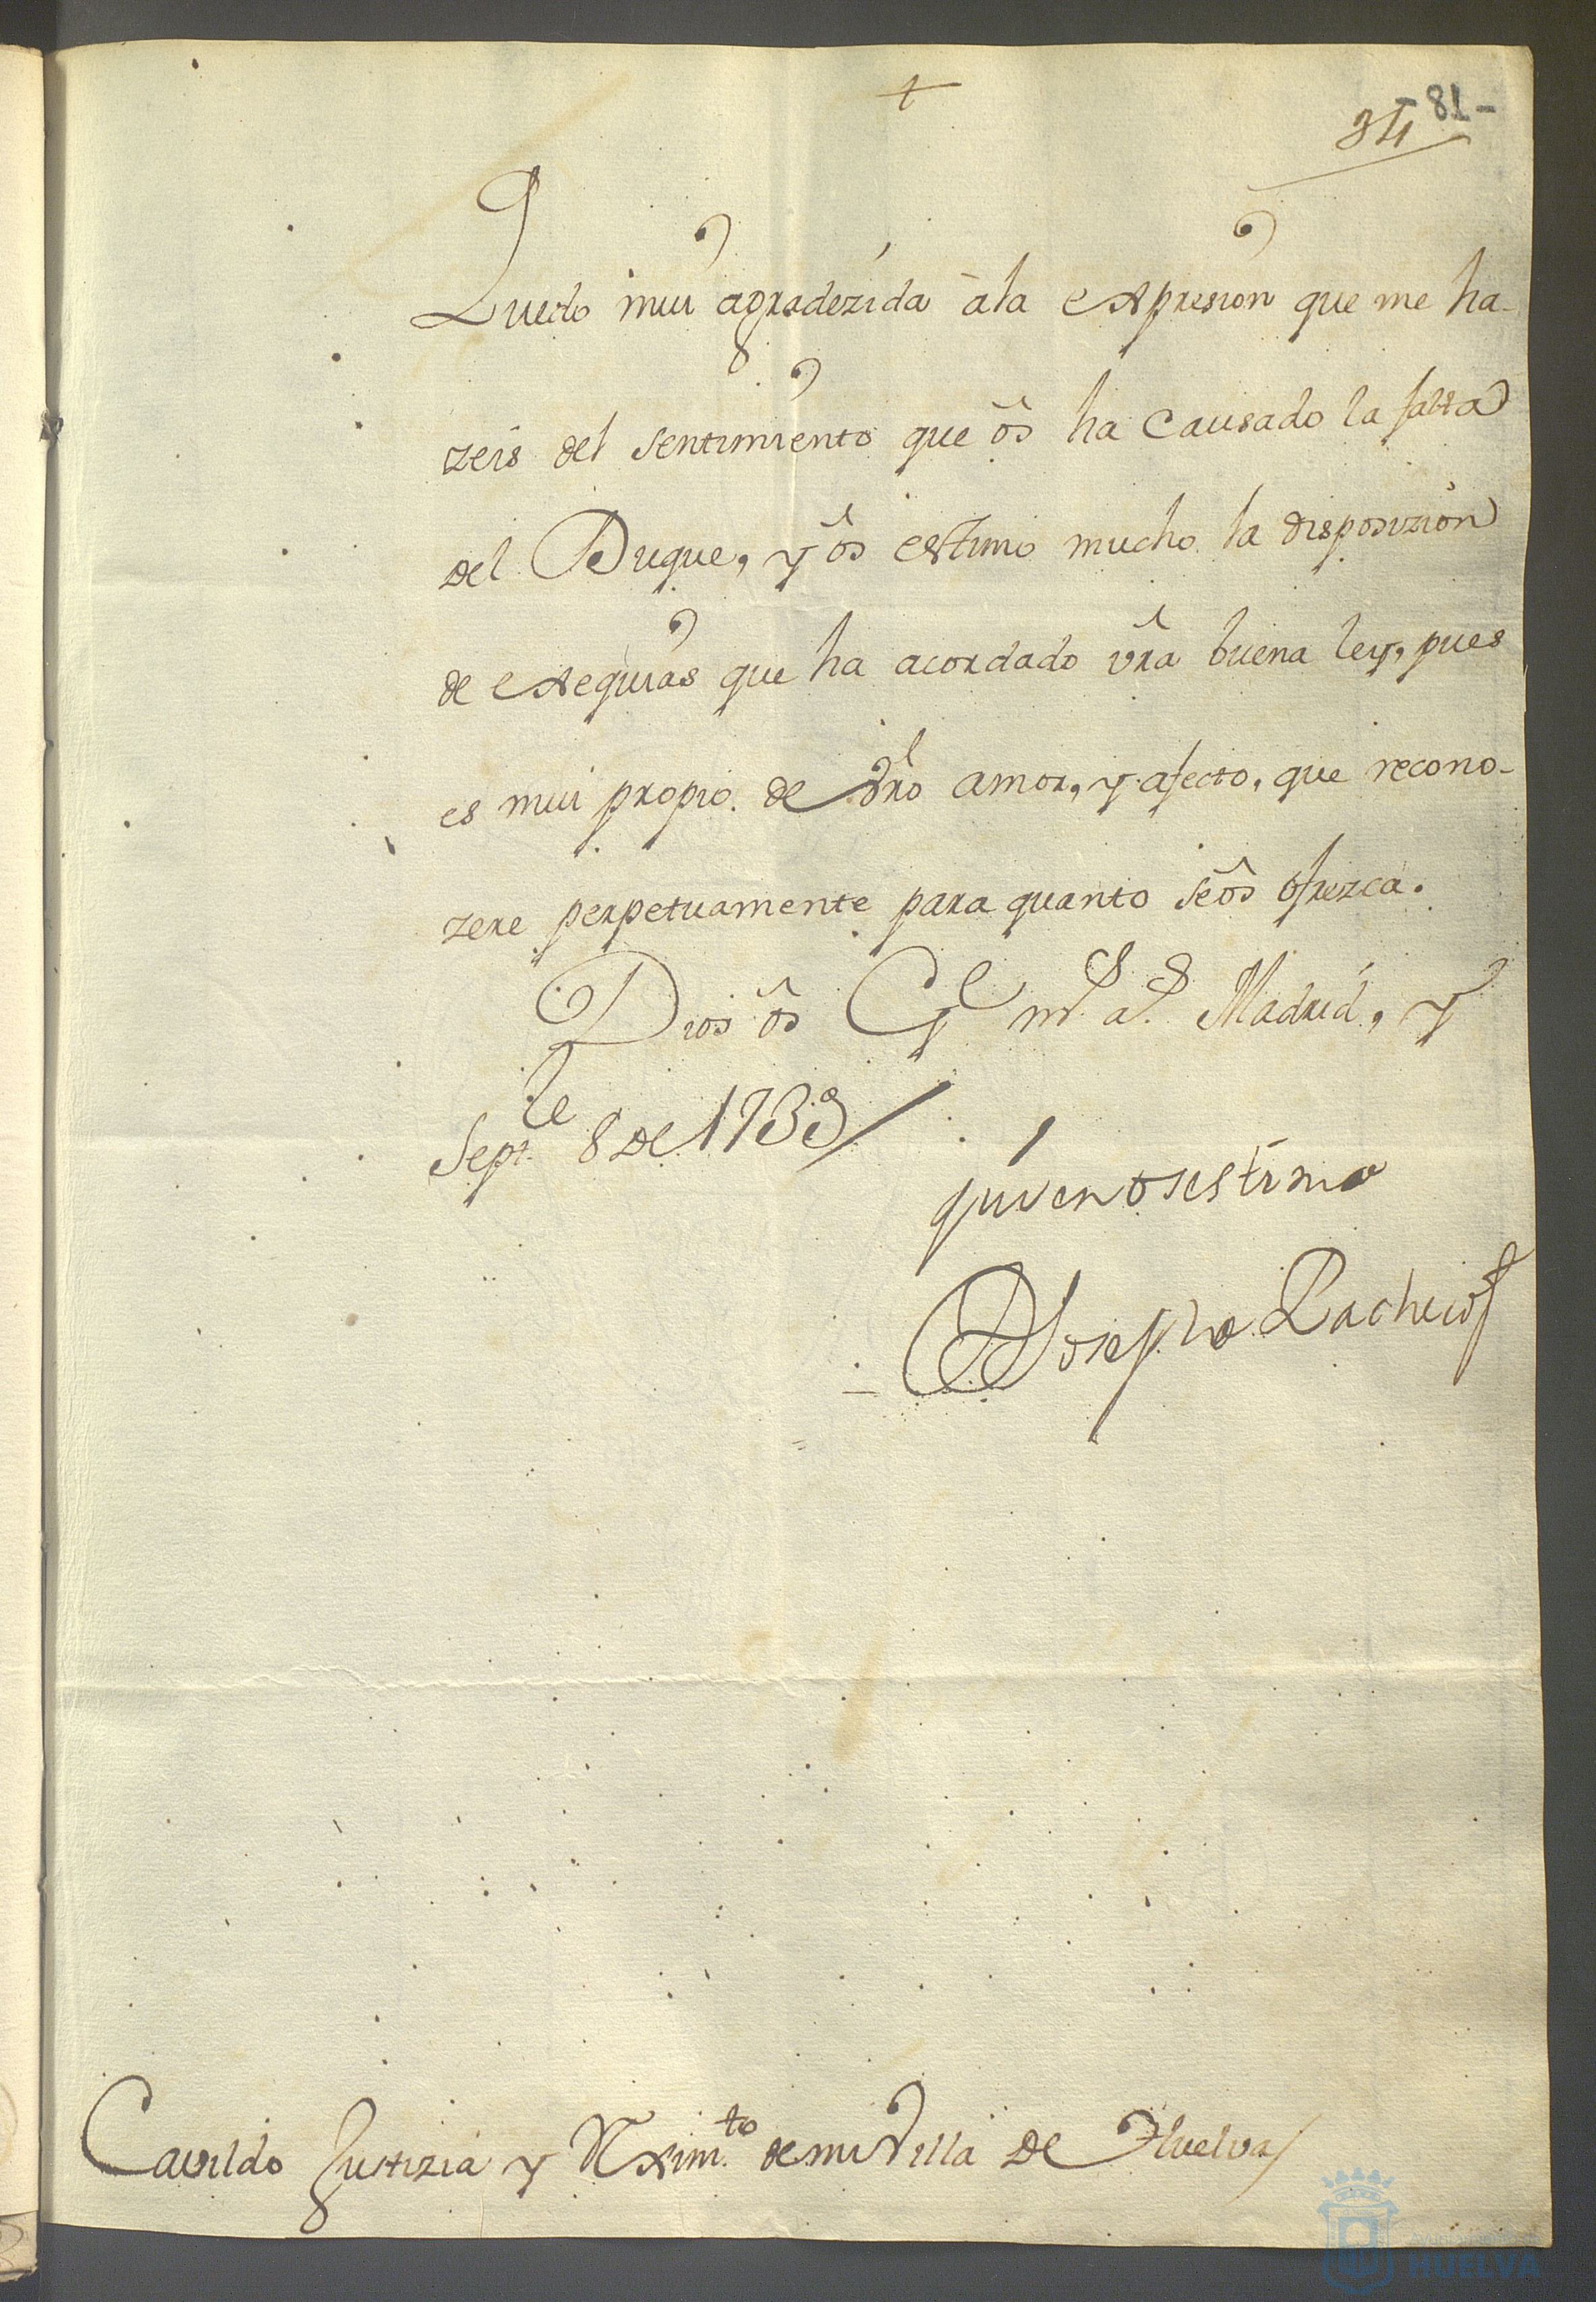 +
34 81-
Quedo mui agradezida â la expresion que me ha-
zeis del sentimiento que ôs ha causado la falta
del Duque, y ôs estimo mucho la disposizion
de exequias que ha acordado vr̂a buena ley, pues
es mui propio de vr̂o amor, y afecto, que recono-
zere perpetuamente para quanto se ôs ofrezca.
Dios ôs Gᵉ mˢ aˢ. Madrid, y
Septᵉ 8 de 1733
quien os estima
Josepha Pacheco
Cavildo Justizia y Reximᵗᵒ de mi Villa de Huelva
HUELVA